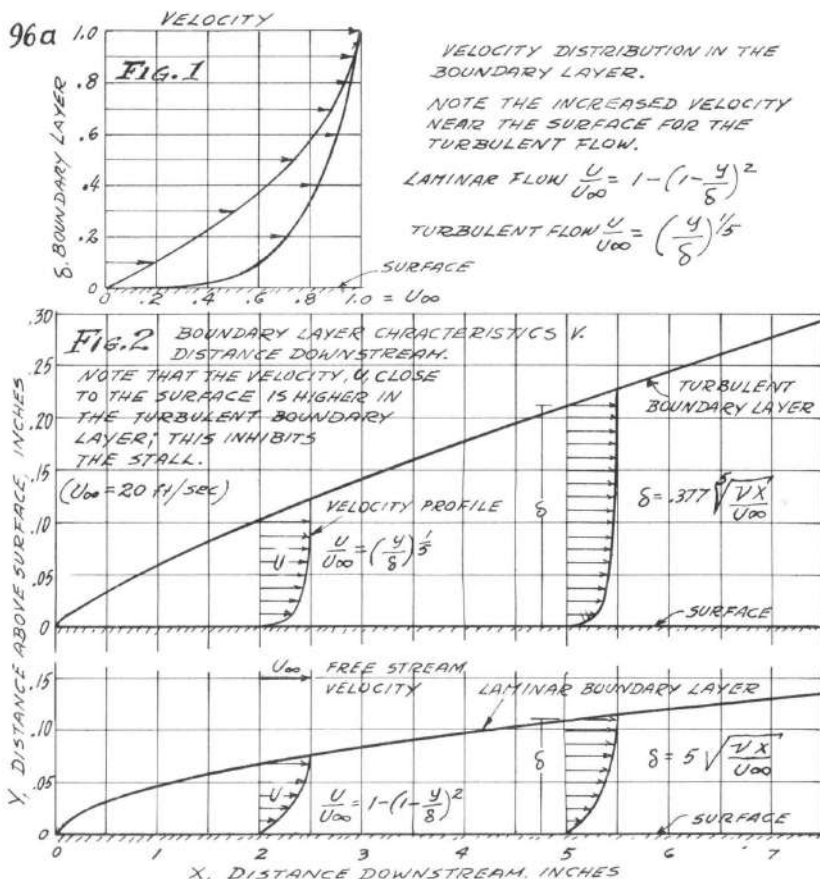 96a
VELOCITY
FIG. 1
δ, BOUNDARY LAYER
1.0
.8
.6
.4
.2
0
0 .2 .4 .6 .8 1.0 = U∞
SURFACE
VELOCITY DISTRIBUTION IN THE
BOUNDARY LAYER.
NOTE THE INCREASED VELOCITY
NEAR THE SURFACE FOR THE
TURBULENT FLOW.
LAMINAR FLOW U/U∞ = 1-(1-y/δ)²
TURBULENT FLOW U/U∞ = (y/δ)^1/5
FIG. 2 BOUNDARY LAYER CHRACTERISTICS V.
DISTANCE DOWNSTREAM.
NOTE THAT THE VELOCITY, U, CLOSE
TO THE SURFACE IS HIGHER IN
THE TURBULENT BOUNDARY
LAYER; THIS INHIBITS
THE STALL.
(U∞ = 20 ft/sec)
.30
.25
.20
.15
.10
.05
0
TURBULENT
BOUNDARY LAYER
VELOCITY PROFILE
U
U/U∞ = (y/δ)^1/5
δ
δ = .377 ⁵√(νX/U∞)
SURFACE
Y, DISTANCE ABOVE SURFACE, INCHES
.15
.10
.05
0
U∞ FREE STREAM
VELOCITY
LAMINAR BOUNDARY LAYER
U
U/U∞ = 1-(1-y/δ)²
δ
δ = 5 √(νX/U∞)
SURFACE
0 1 2 3 4 5 6 7
X, DISTANCE DOWNSTREAM, INCHES